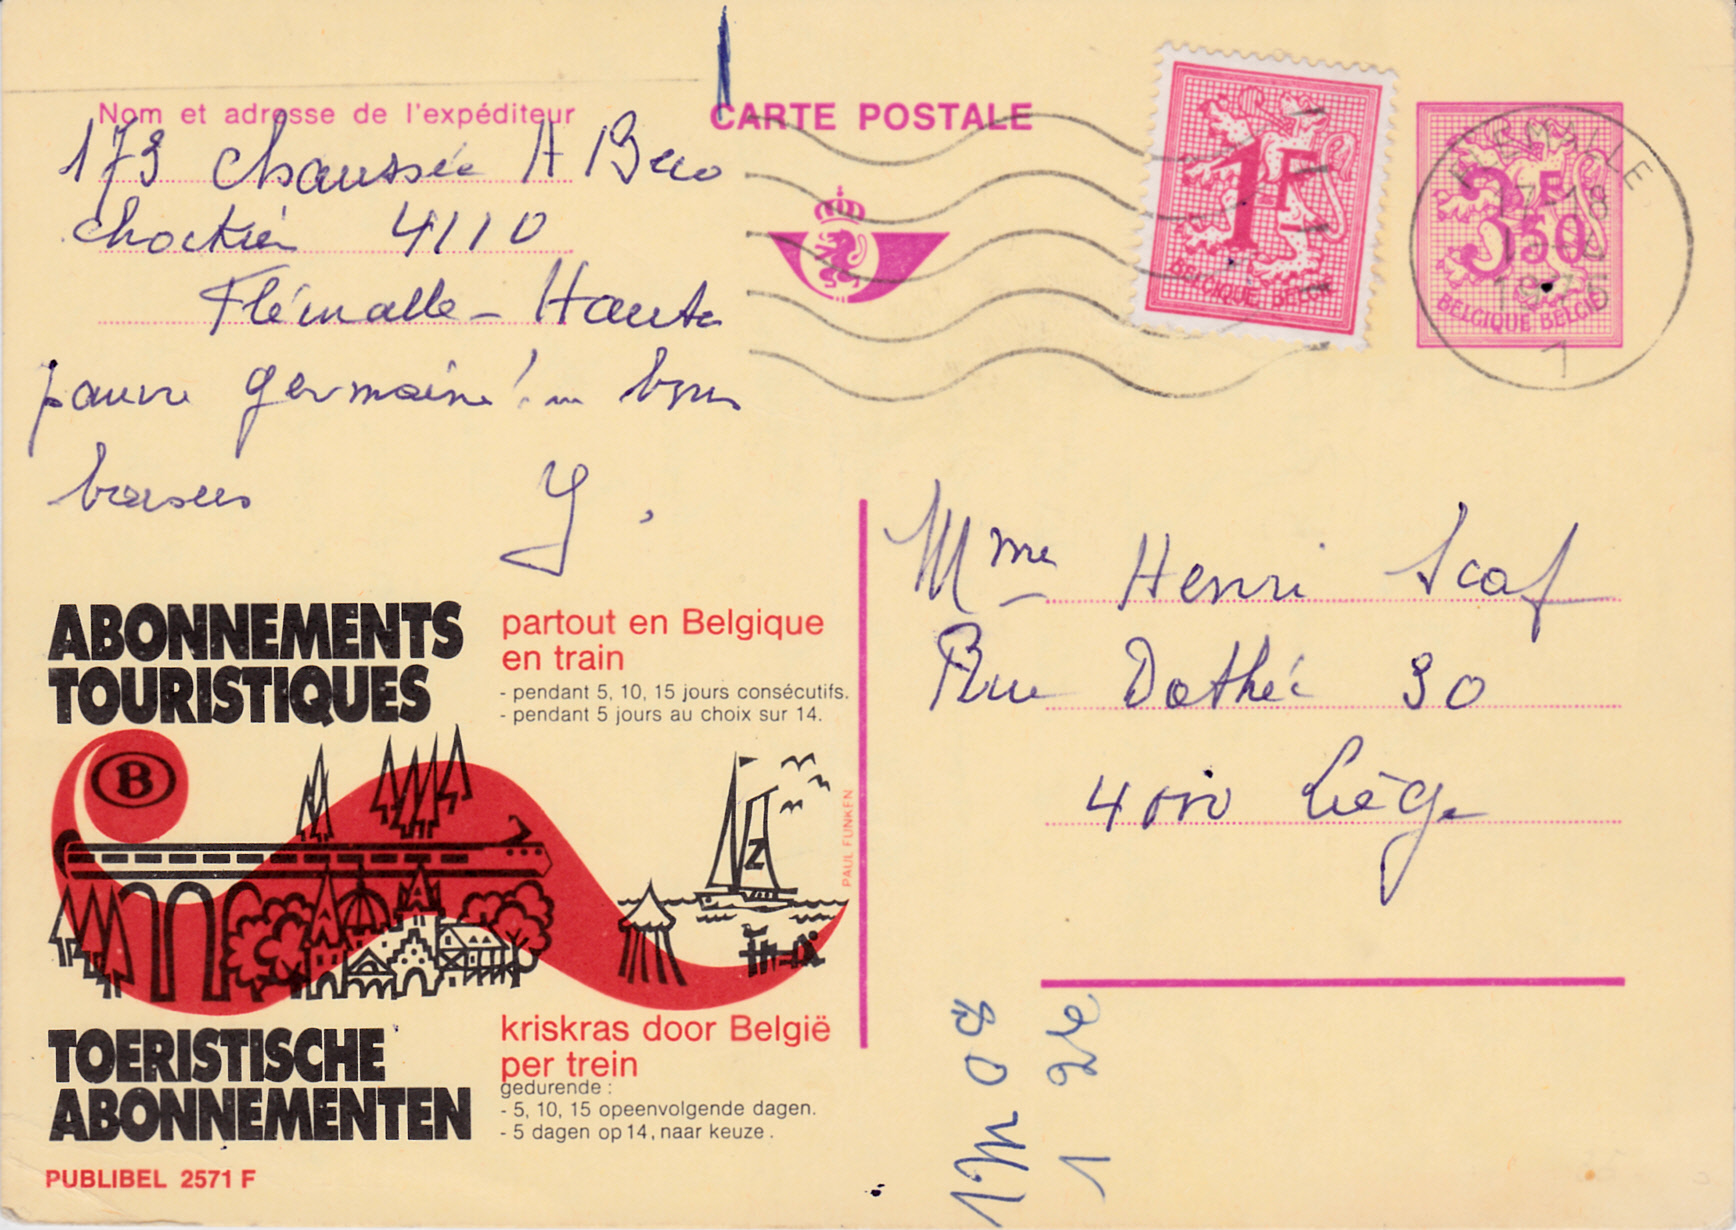 CARTE POSTALE
Nom et adresse de l'expéditeur
173 chaussée A Buo
chockier 4110
Flémalle - Haute
pauvre germaine! bons
baisers Y.
1F
BELGIQUE BELGIË
FLEMALLE
17-18
1975
1
3F
3,50
BELGIQUE BELGIË
Mme Henri Scaf
Rue Dothée 30
4000 Liège
ABONNEMENTS
TOURISTIQUES
partout en Belgique
en train
- pendant 5, 10, 15 jours consécutifs.
- pendant 5 jours au choix sur 14.
B
Z
PAUL FUNKEN
TOERISTISCHE
ABONNEMENTEN
kriskras door België
per trein
gedurende :
- 5, 10, 15 opeenvolgende dagen.
- 5 dagen op 14, naar keuze.
PUBLIBEL 2571 F